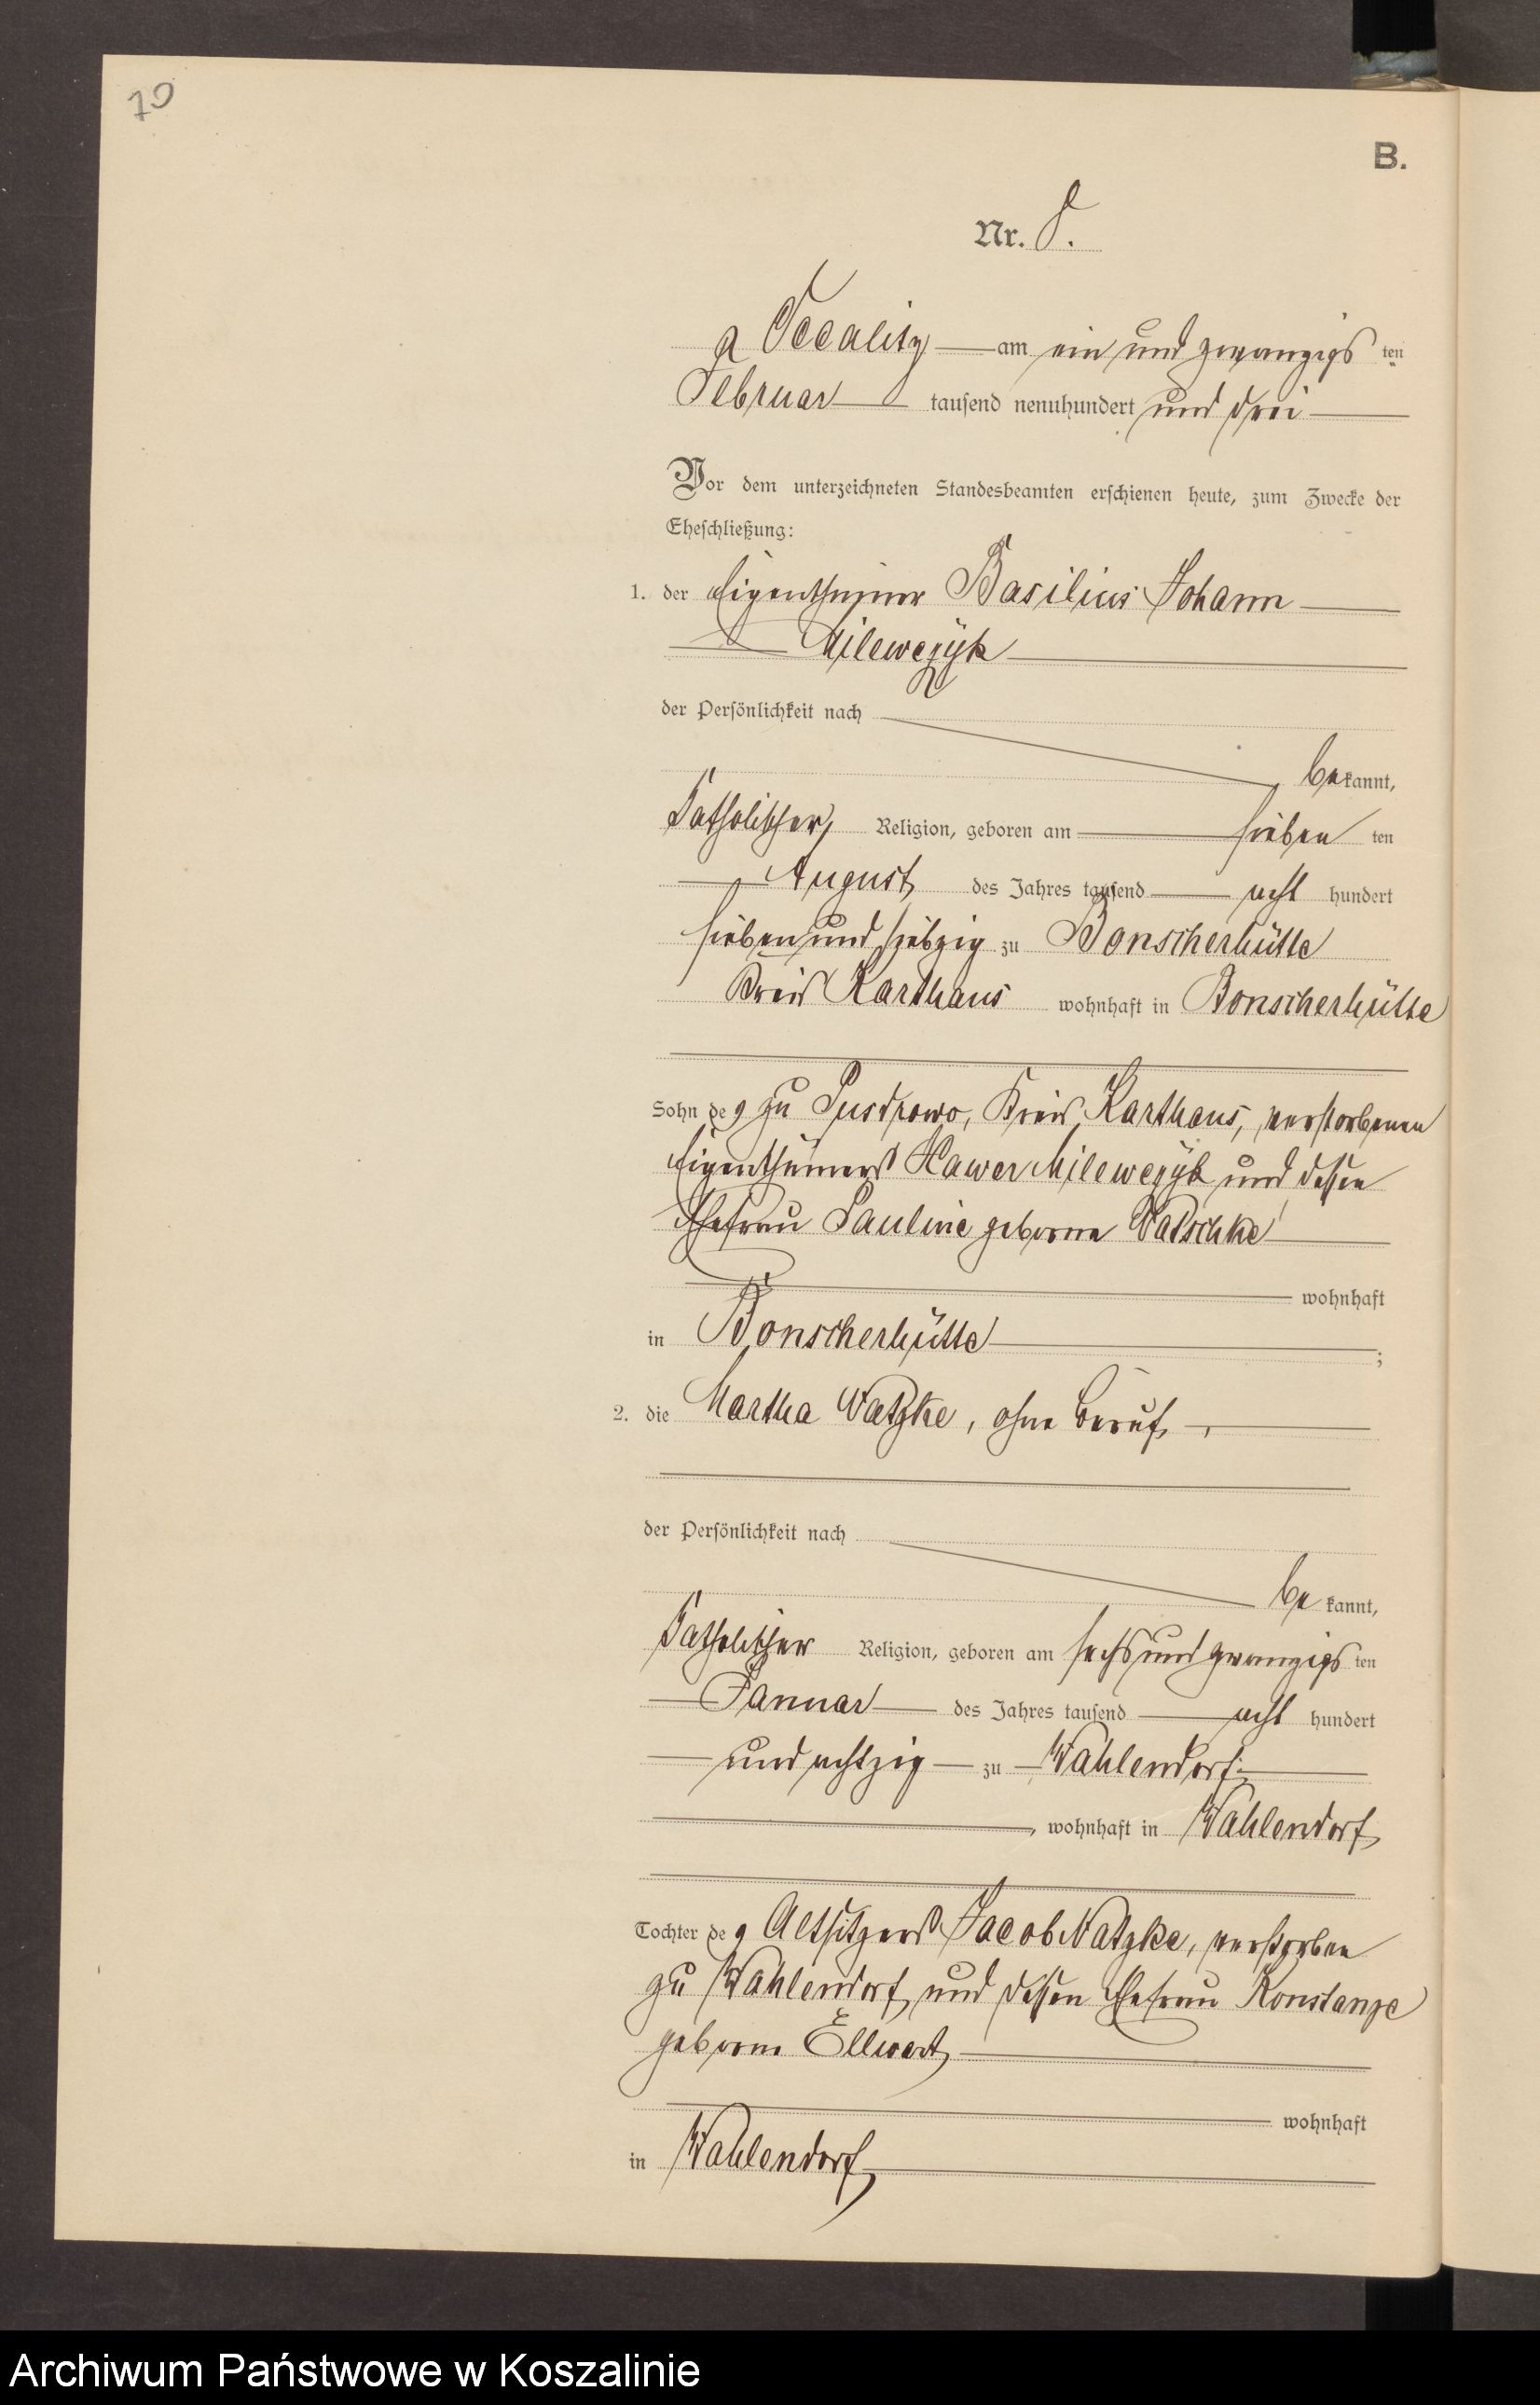 70
B.
Nr. 8.
Occalitz am ein und zwanzigs ten
Februar tausend neunhundert und drei
Vor dem unterzeichneten Standesbeamten erschienen heute, zum Zwecke der
Eheschließung:
1. der Eigenthümer Basilius Johann
Milewczyk
der Persönlichkeit nach
be kannt,
Katholischer, Religion, geboren am sieben ten
August des Jahres tausend acht hundert
sieben und siebzig zu Bonscherhütte
Kreis Karthaus wohnhaft in Bonscherhütte
Sohn des zu Kreis Karthaus, verstorbenen
Eigenthümers Xawer Milewczyk und dessen
Ehefrau Pauline geborne Watschke
wohnhaft
in Bonscherhütte ;
2. die Martha Watzke, ohne Beruf,
der Persönlichkeit nach
be kannt,
Katholischer Religion, geboren am sechs und zwanzigs ten
Januar des Jahres tausend acht hundert
und achtzig zu Wahlendorf,
, wohnhaft in Wahlendorf
Tochter des Altsitzers Jacob Watzke, verstorben
zu Wahlendorf und dessen Ehefrau Konstanze
geborne Ellwart
wohnhaft
in Wahlendorf
Archiwum Państwowe w Koszalinie